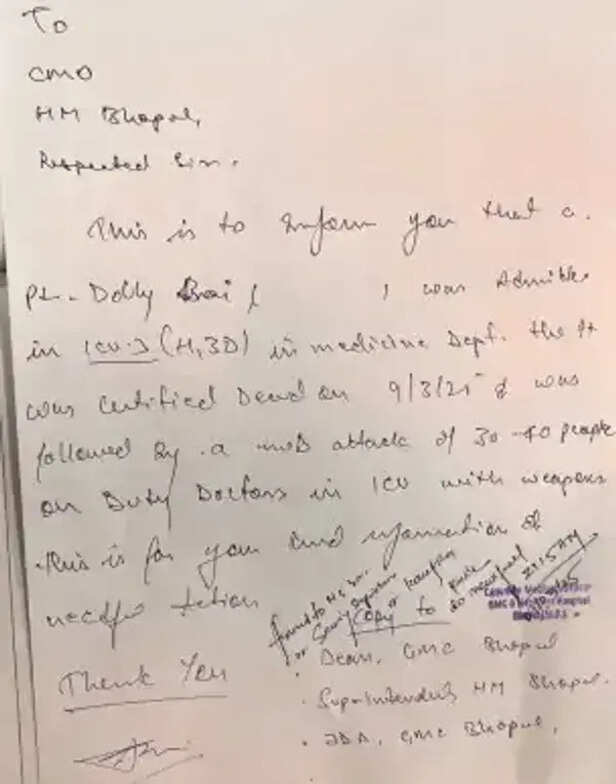 To
CMO
HM Bhopal,
Respected Sir.
This is to inform you that a.
Pt- Dolly Bai ( ) was Admitte
in ICU-3 (H,3D) in medicine Dept. the Pt
was certified Dead on 9/3/25 & was
followed by a mob attack of 30-40 people
on Duty Doctors in ICU with weapons
This is for your kind information &
needful action
forward to
or Security
or
Copy to
Thank You
· Dean, GMC Bhopal
· Superintendent, HM Bhopal.
· JDA, GMC Bhopal,